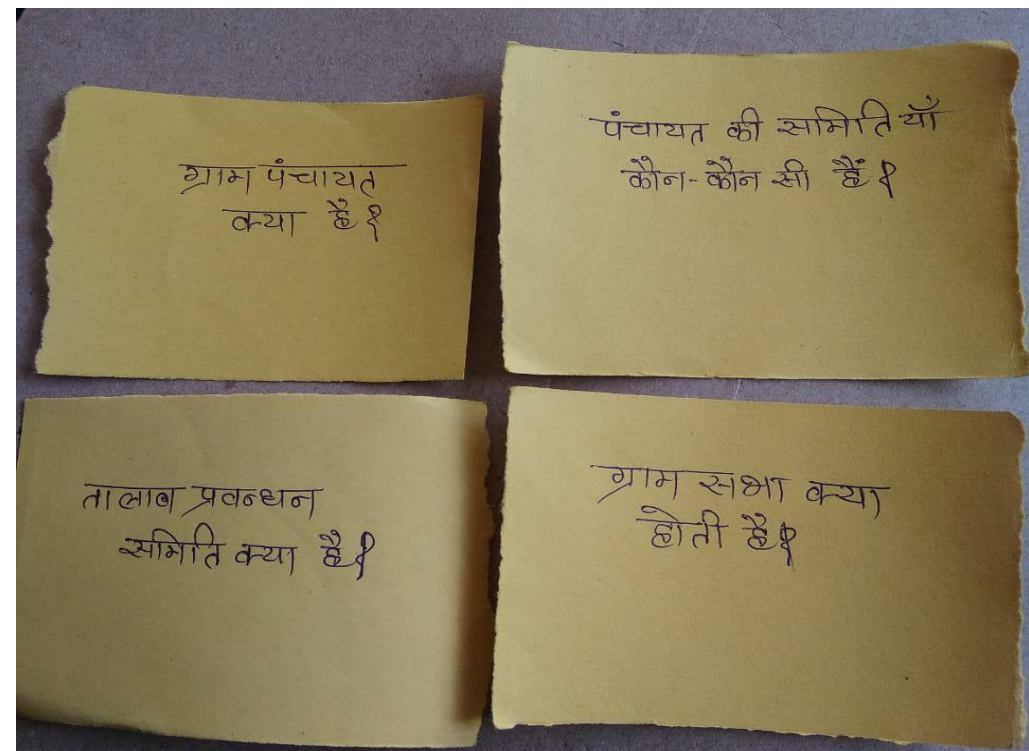 ग्राम पंचायत
क्या है?
पंचायत की समितियाँ
कौन-कौन सी हैं?
तालाब प्रवन्धन
समिति क्या है?
ग्राम सभा क्या
होती है?